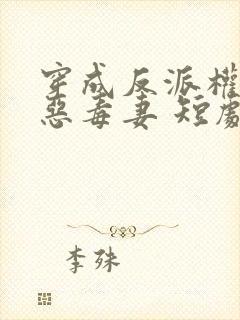 穿成反派權
惡毒妻 短劇
李殊